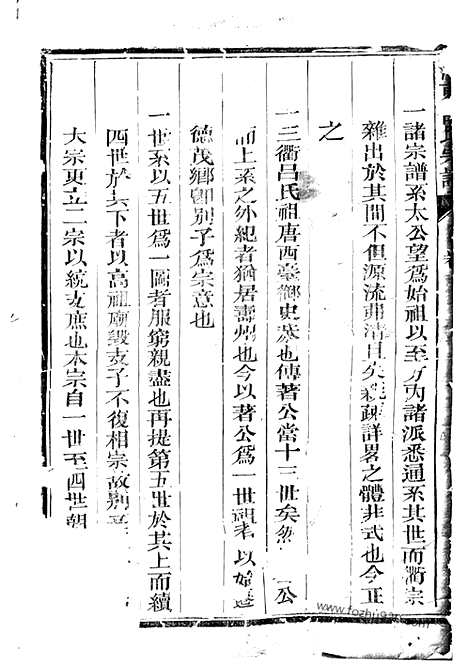 一諸宗譜系太公望爲始祖以至方內諸派悉通系其世而衢宗
雜出於其間不但源流弗清且失親疎詳畧之體非式也今正
之
一三衢呂氏祖唐西臺御史恭也傳著公當十三世矣然 公
而上系之外紀者猶居壽州也今以著公爲一世覩者以始遷
德茂鄉卽別子爲宗意也
一世系以五世爲一圖者服窮親盡也再提第五世於其上而續
四世於其下者以高祖廟毀支子不復相宗故別
大宗更立二宗以統支庶也本宗自一世至四世朝
www.fozhu920.com